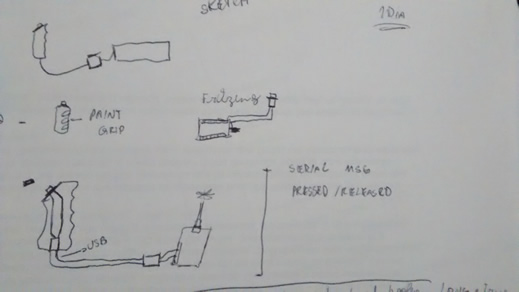 SKETCH
1 DIA
PAINT
GRIP
Fritzing
SERIAL MSG
PRESSED / RELEASED
USB